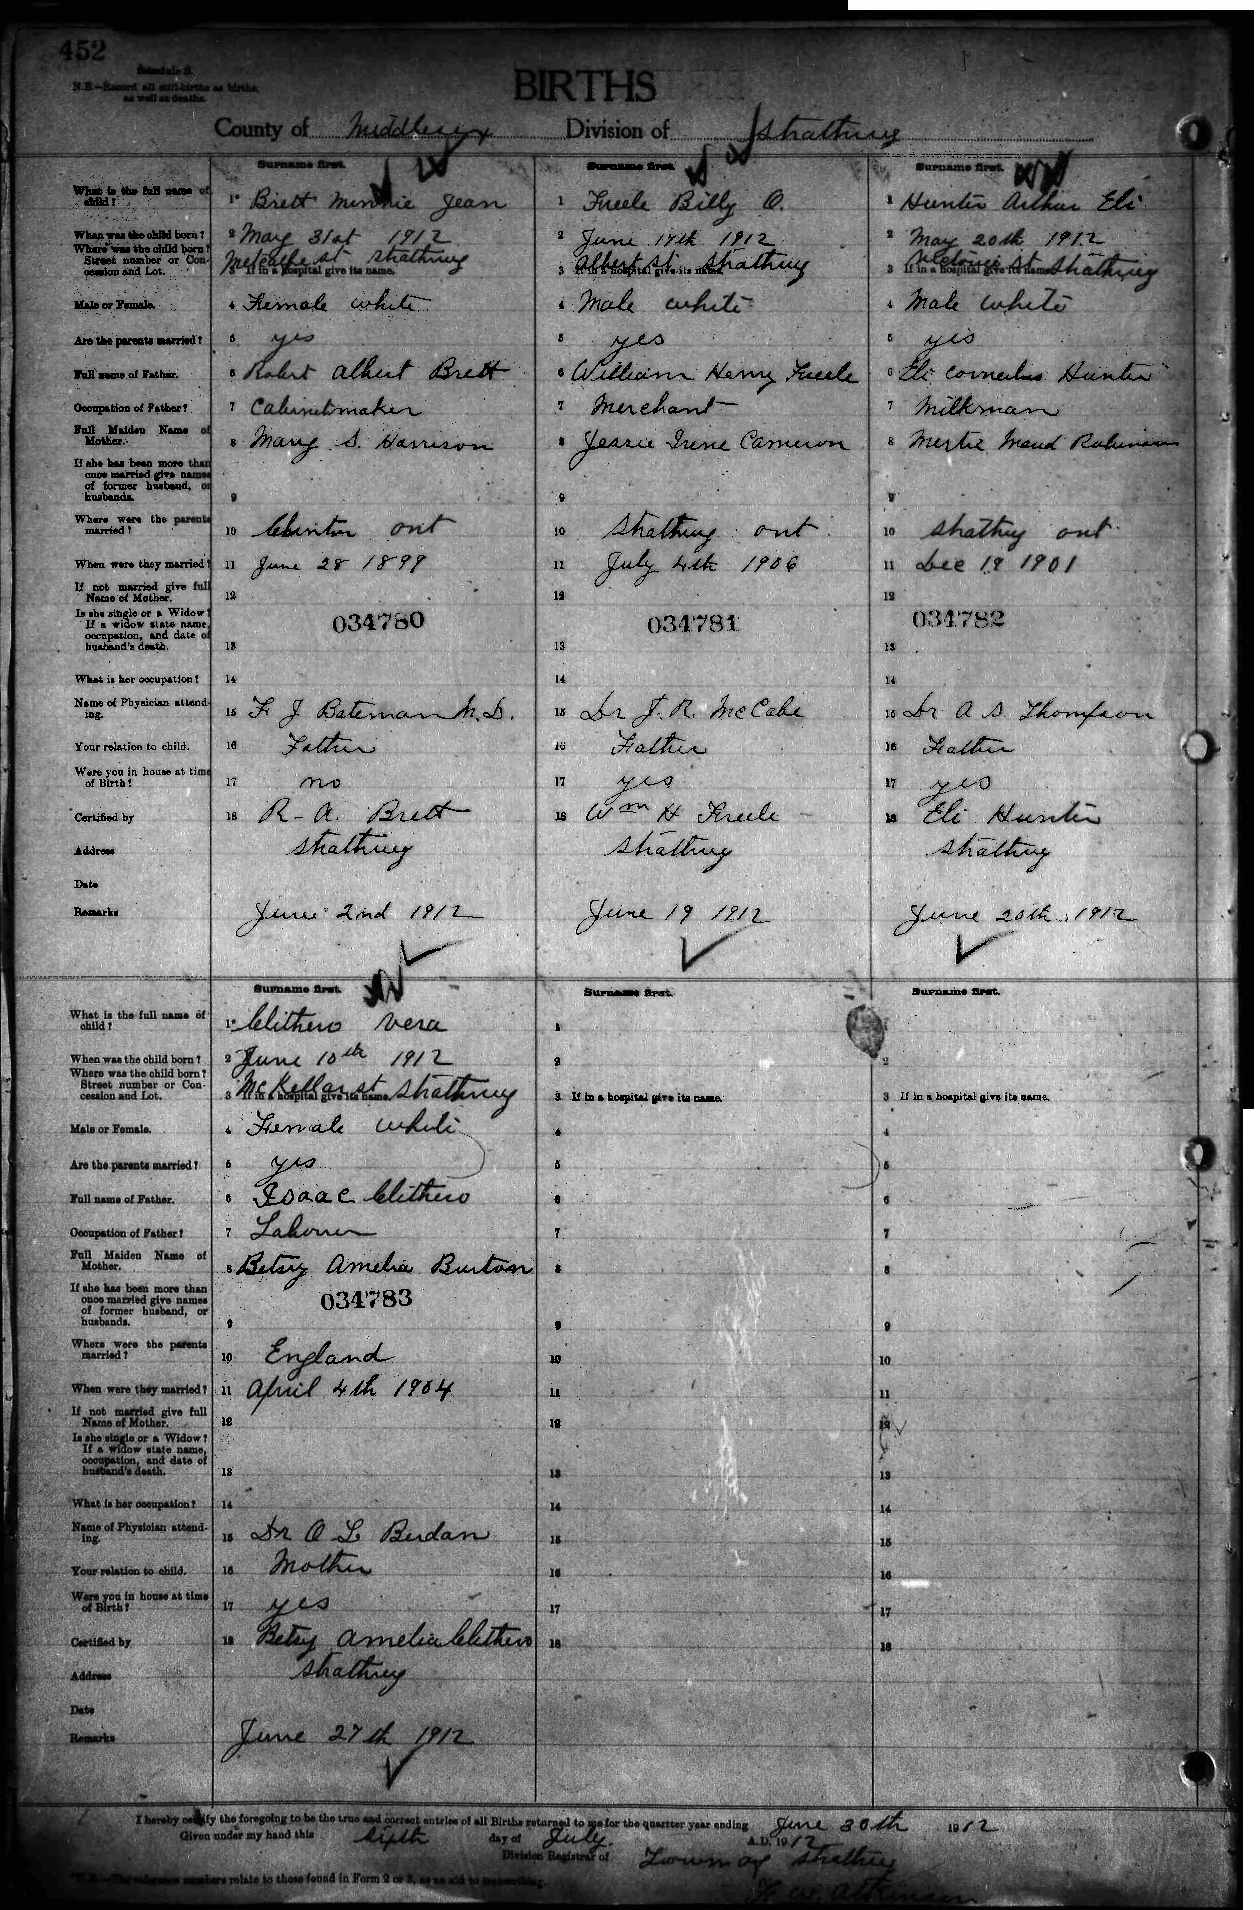 452
Schedule B.
N.B.—Record all still-births as births,
as well as deaths.
BIRTHS
County of Middlesex Division of Strathroy
Surname first. Surname first. Surname first.
What is the full name of child? 1 Brett Minnie Jean 1 Freele Billy O. 1 Hunter Arthur Eli
When was the child born? 2 May 31st 1912 2 June 17th 1912 2 May 20th 1912
Where was the child born? Street number or Concession and Lot. 3 If in a hospital give its name. Metcalfe st Strathroy 3 If in a hospital give its name. Albert St. Strathroy 3 If in a hospital give its name. Victoria St Strathroy
Male or Female. 4 Female white 4 Male white 4 Male white
Are the parents married? 5 yes 5 yes 5 yes
Full name of Father. 6 Robert Albert Brett 6 William Henry Freele 6 Eli Cornelius Hunter
Occupation of Father? 7 Cabinetmaker 7 Merchant 7 Milkman
Full Maiden Name of Mother. 8 Mary S. Harrison 8 Jessie Irene Cameron 8 Mertie Maud Robinson
If she has been more than once married give names of former husband, or husbands. 9 9 9
Where were the parents married? 10 Clinton ont 10 Strathroy ont 10 Strathroy ont
When were they married? 11 June 28 1899 11 July 4th 1906 11 Dec 19 1901
If not married give full Name of Mother. 12 12 12
Is she single or a Widow? If a widow state name, occupation, and date of husband's death. 13 034780 13 034781 13 034782
What is her occupation? 14 14 14
Name of Physician attending. 15 F J Bateman M.D. 15 Dr J. R. McCabe 15 Dr A S Thompson
Your relation to child. 16 Father 16 Father 16 Father
Were you in house at time of Birth? 17 no 17 yes 17 yes
Certified by 18 R-A. Brett 18 Wm H Freele 18 Eli Hunter
Address Strathroy Strathroy Strathroy
Date
Remarks June 2nd 1912 June 19 1912 June 20th 1912
Surname first. Surname first. Surname first.
What is the full name of child? 1 Clithero Vera 1 1
When was the child born? 2 June 10th 1912 2 2
Where was the child born? Street number or Concession and Lot. 3 If in a hospital give its name. McKellar st Strathroy 3 If in a hospital give its name. 3 If in a hospital give its name.
Male or Female. 4 Female white 4 4
Are the parents married? 5 yes 5 5
Full name of Father. 6 Isaac Clithero 6 6
Occupation of Father? 7 Labourer 7 7
Full Maiden Name of Mother. 8 Betsy Amelia Burton 8 8
If she has been more than once married give names of former husband, or husbands. 9 034783 9 9
Where were the parents married? 10 England 10 10
When were they married? 11 April 4th 1904 11 11
If not married give full Name of Mother. 12 12 12
Is she single or a Widow? If a widow state name, occupation, and date of husband's death. 13 13 13
What is her occupation? 14 14 14
Name of Physician attending. 15 Dr O L Berdan 15 15
Your relation to child. 16 Mother 16 16
Were you in house at time of Birth? 17 yes 17 17
Certified by 18 Betsy Amelia Clithero 18 18
Address Strathroy
Date
Remarks June 27th 1912
I hereby certify the foregoing to be the true and correct entries of all Births returned to me for the quarter year ending June 30th 1912
Given under my hand this sixth day of July. A.D. 1912
Division Registrar of Town of Strathroy
F. W. Atkinson
N.B.—The reference numbers relate to those found in Form 2 or 3, as an aid to transcribing.